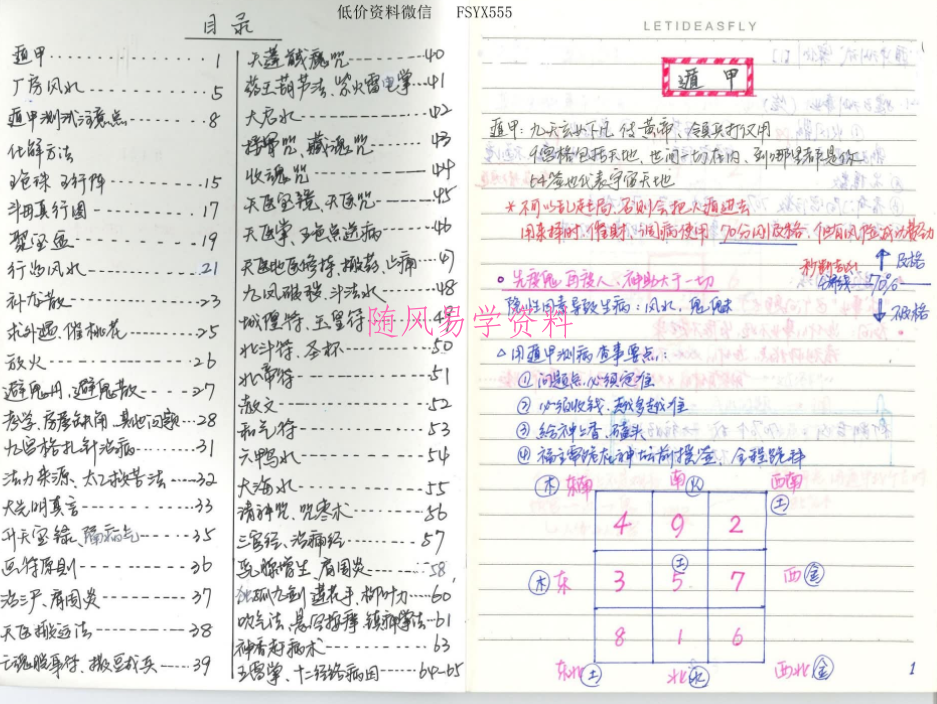 低价资料微信 FSYX555
目录
遁甲 1
厂房风水 5
遁甲测试注意点 8
化解方法
五色珠 五行阵 15
斗母真行图 17
聚宝盆 19
行为风水 21
补龙散 23
求外遇、催桃花 25
放火 26
避鬼丹、避鬼散 27
考学、房屋缺角、其他问题 28
九宫格扎针治病 31
法力来源、太乙救苦法 32
大光明真言 33
升天宝箓、隔病气 35
画符原则 36
治三尸、肩周炎 37
天医搬运法 38
七魂殷事件、撒豆成兵 39
天蓬 魂咒 40
药王葫芦法、紫火雷电掌 41
大启水 42
咒、藏魂咒 43
收魂咒 44
天医宝镜、天医咒 45
天医掌、五色点送病 46
天医地医修持、搬药、止痛 47
九凤破秽、斗法水 48
城隍符、玉皇符 49
北斗符、圣杯 50
北帝符 51
散文 52
和气符 53
六鸭水 54
大海水 55
请神咒、咒枣术 56
三官经、治病经 57
乳腺增生、肩周炎 58
独孤九剑 莲花手、柳叶刀 60
吹气法、悬空按摩、镇神掌法 61
神香打病术 63
五雷掌、十二经络病因 64-65
随风易学资料
LETIDEASFLY
遁甲
遁甲：九天玄女下凡，传黄帝，领兵打仗用
九宫格包括天地、世间一切在内，到哪里都是你
64签也代表宇宙天地
*不可以乱起局，否则会把人循进去
用来择时、催财、 周病使用 70分以上及格，但有风险
70%
及格
不及格
先度鬼，再度人，神助大于一切
隐性因素导致生病：风水，鬼魅
△用遁甲测病查事要点：
①问题点，必须定准
②必须收钱，越多越准
③给神上香、磕头
④福主需跪在神坛前摸签，全程跪拜
木 东南 南 火 西南 土
4 9 2
土
木 东 3 5 7 西 金
8 1 6
东北 土 北 水 西北 金
1